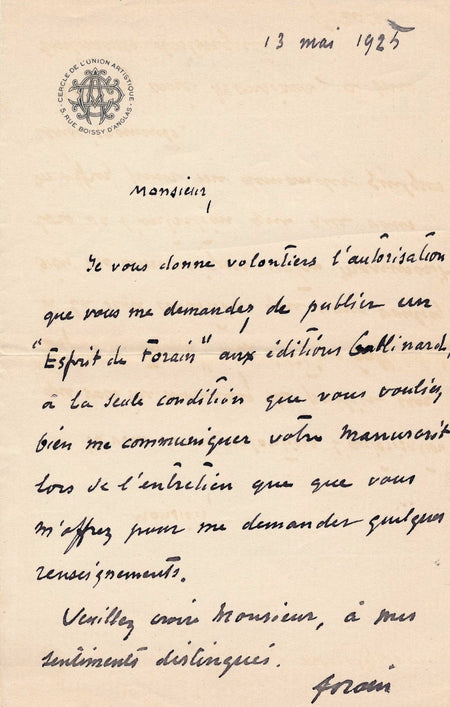 13 mai 1925
CERCLE DE L'UNION ARTISTIQUE
5, RUE BOISSY D'ANGLAS
Monsieur,
Je vous donne volontiers l'autorisation
que vous me demandez, de publier un
"Esprit de Forain" aux éditions Gallimard,
à la seule condition que vous vouliez
bien me communiquer votre manuscrit
lors de l'entretien que que vous
m'offrez pour me demander quelques
renseignements.
Veuillez croire Monsieur, à mes
sentiments distingués.
forain